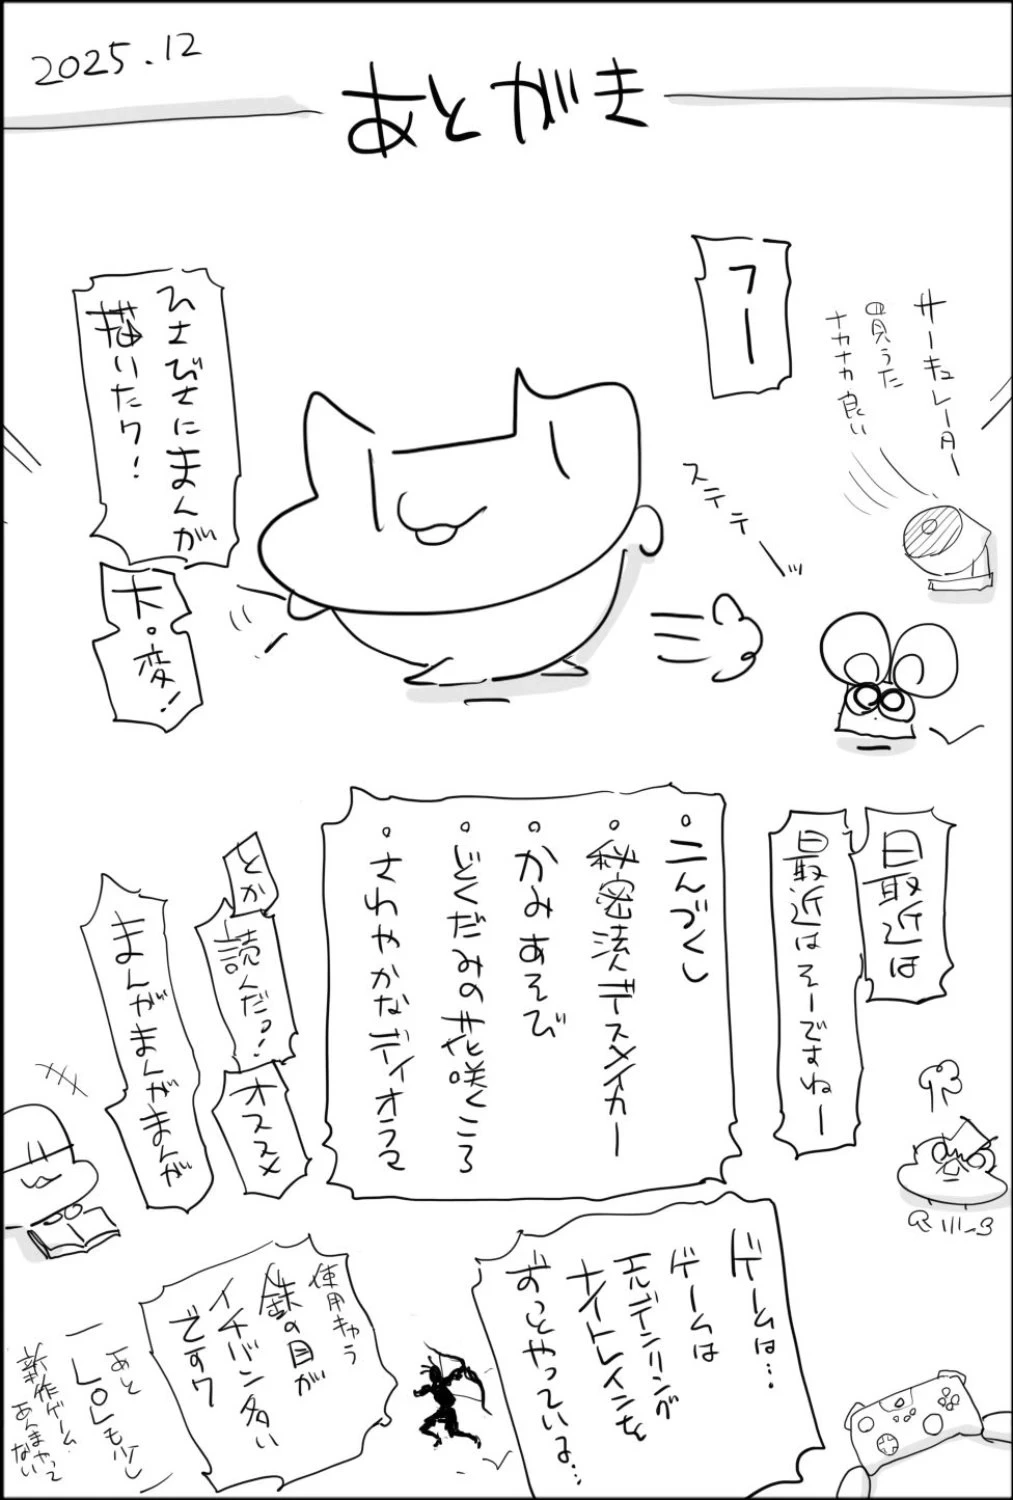 2025.12
あとがき
フー
サーキュレーター
買うた
ナカナカ良い
ひさびさにまんが
描いたワ!
大・変!
ステテテーッ
最近は
最近はそーですねー
・こんづくし
・秘密法人デスメイカー
・かみあそび
・どくだみの花咲くころ
・さわやかなディオラマ
とか
読んだっ!
オススメ
まんがまんがまんが
ゲームは…
ゲームは
エルデンリング
ナイトレインを
ずっとやっているよ…
使用キャラ
鉄の目が
イチバン多い
ですワ
あと
LOLも少し
新作ゲーム
あんまやって
ない